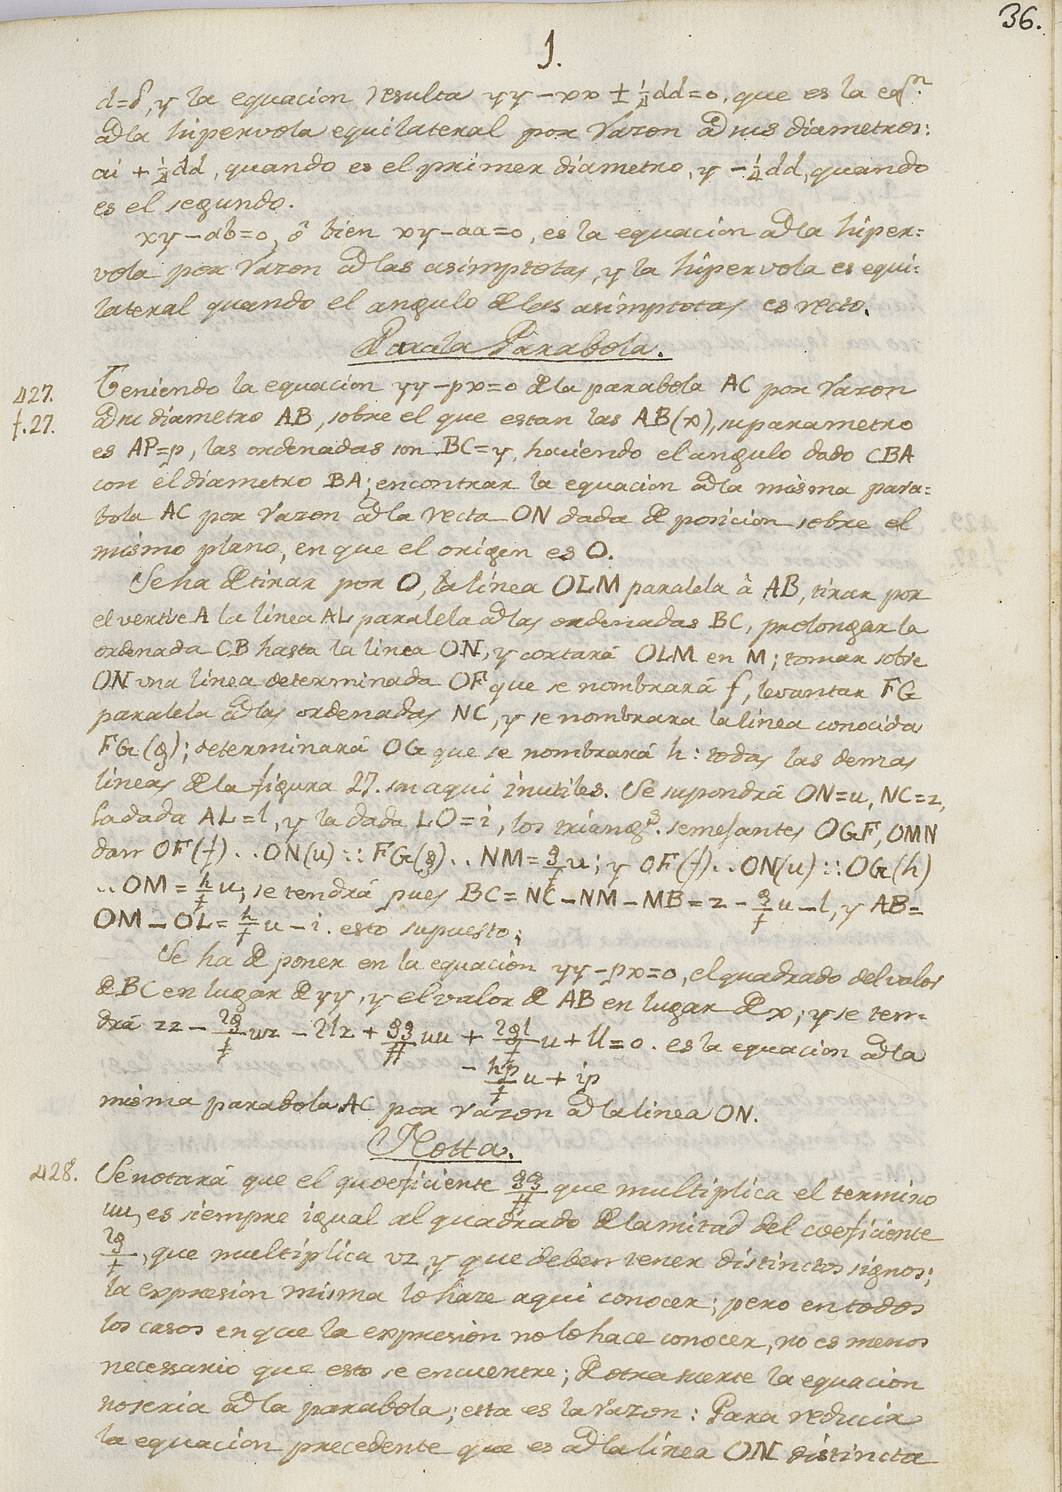 36.
J.
d=δ, y la equacion resulta yy-xx ± ¼dd=0, que es la eqⁿ.
a d la hipervola equilateral por razon a d sus diametros:
ai + ¼dd, quando es el primer diametro, y -¼dd, quando
es el segundo.
xy-ab=0, ô bien xy-aa=0, es la equacion a d la hiper=
vola por razon a d las asimptotas, y la hipervola es equi:
lateral quando el angulo d las asimptotas es recto.
Para la Parabola.
427. Teniendo la equacion yy-px=0 d la parabola AC por razon
f.27. a d su diametro AB, sobre el que estan las AB(x), su parametro
es AP=p, las ordenadas son BC=y, haciendo el angulo dado CBA
con el diametro BA; encontrar la equacion a d la misma para=
bola AC por razon a d la recta ON dada d posicion sobre el
mismo plano, en que el origen es O.
Se ha d tirar por O, la linea OLM paralela â AB, tirar por
el vertice A la linea AL paralela a d las ordenadas BC, prolongar la
ordenada CB hasta la linea ON, y cortará OLM en M; tomar sobre
ON una linea determinada OF que se nombrará f, levantar FG
paralela a d las ordenadas NC, y se nombrara la linea conocida
FG(g); determinará OG que se nombrará h: todas las demas
lineas d la figura 27. son aqui inutiles. Se supondrá ON=u, NC=z,
la dada AL=l, y la dada LO=i, los triangˢ. semejantes OGF, OMN
dan OF(f)..ON(u)::FG(g)..NM=g/f u; y OF(f)..ON(u)::OG(h)
..OM = h/f u; se tendrá pues BC=NC-NM-MB=z-g/f u-l, y AB=
OM-OL=h/f u-i. esto supuesto;
Se ha d poner en la equacion yy-px=0, el quadrado del valor
d BC en lugar d yy, y el valor d AB en lugar d x; y se ten-
drá zz - 2g/f uz - 2lz + gg/ff uu + 2gl/f u + ll=0. es la equacion a d la
- hp/f u + ip
misma parabola AC por razon a d la linea ON.
Notta.
428. Se notará que el quoeficiente gg/ff que multiplica el termino
uu, es siempre igual al quadrado d la mitad del coeficiente
2g/f, que multiplica uz, y que deben tener distinctos signos;
la expresion misma lo haze aqui conocer; pero en todos
los casos en que la expresion no lo hace conocer, no es menos
necessario que esto se encuentre; d otra suerte la equacion
no seria a d la parabola; esta es la razon: Para reducir
la equacion precedente que es a d la linea ON distincta